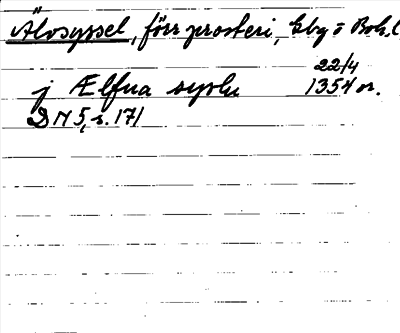 Älvsyssel, förr prosteri, Gby o Boh. l
22/4
j Ælfua syslu 1354 or.
DN 5, s. 171